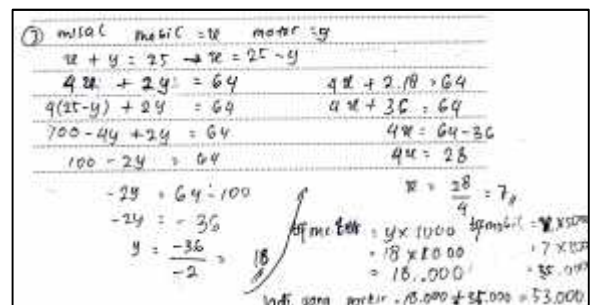 ③ misal mobil = x motor = y
x + y = 25 → x = 25 - y
4x + 2y = 64
4(25-y) + 2y = 64
100 - 4y + 2y = 64
100 - 2y = 64
-2y = 64 - 100
-2y = -36
y = -36/-2 = 18
4x + 2.18 = 64
4x + 36 = 64
4x = 64 - 36
4x = 28
x = 28/4 = 7
= y x 1000
= 18 x 1000
= 18.000
= 35.000
Jadi uang parkir = 18.000 + 35.000 = 53.000